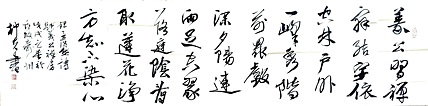 義公習禪
寂結宇依
空林户外
一峰秀階
前眾壑
深夕陽連
雨足空翠
落庭陰看
取蓮花淨
方知不染心